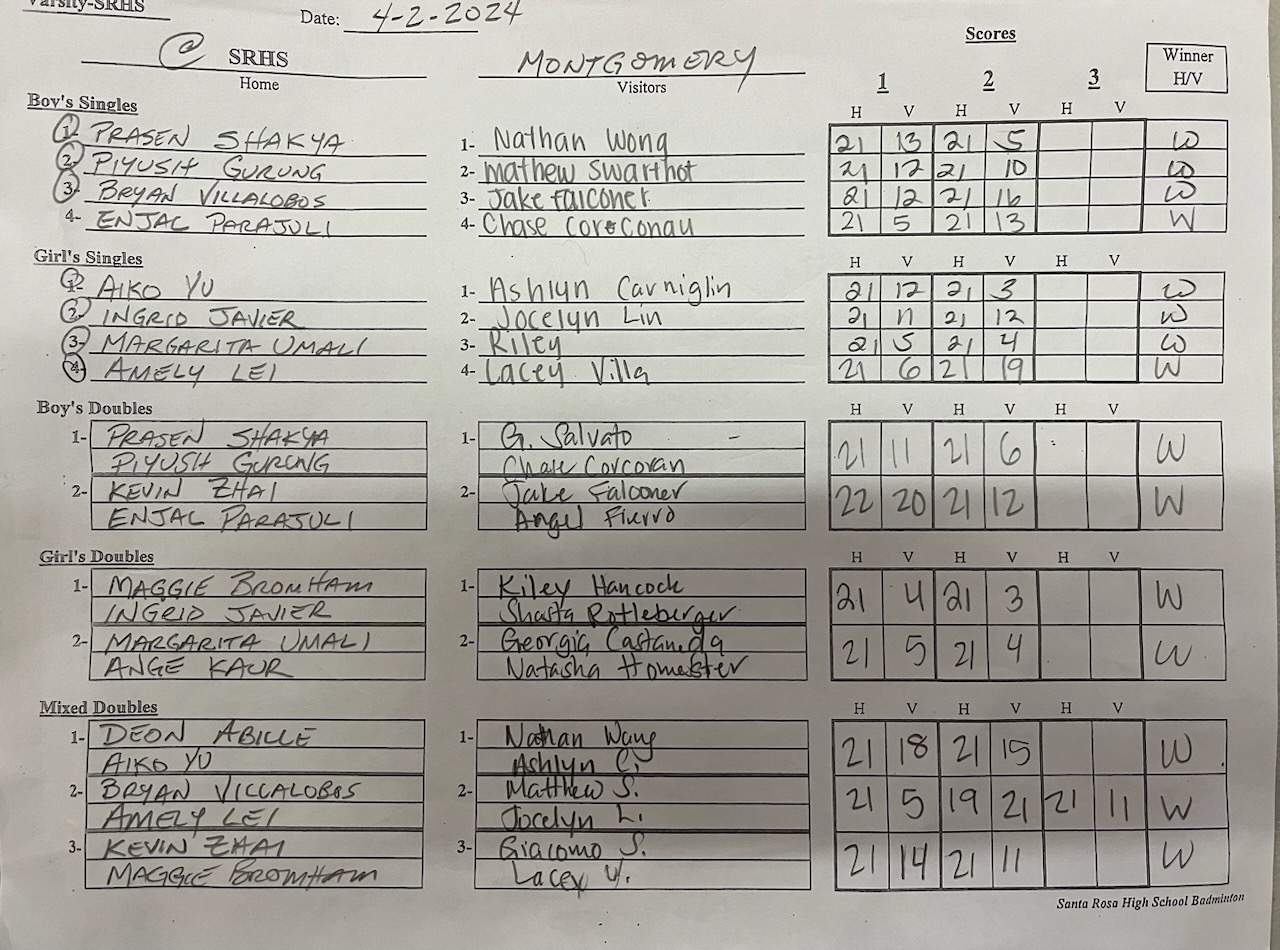 Varsity-SRHS
Date: 4-2-2024
@ SRHS MONTGOMERY Scores Winner
Home Visitors 1 2 3 H/V
Boy's Singles H V H V H V
1- PRASEN SHAKYA 1- Nathan Wong 21 13 21 5 W
2- PIYUSH GURUNG 2- Mathew Swarthot 21 12 21 10 W
3- BRYAN VILLALOBOS 3- Jake Falconer 21 12 21 16 W
4- ENJAL PARAJULI 4- Chase 21 5 21 13 W
Girl's Singles H V H V H V
1- AIKO YU 1- Ashlyn Carniglin 21 12 21 3 W
2- INGRID JAVIER 2- Jocelyn Lin 21 11 21 12 W
3- MARGARITA UMALI 3- Riley 21 5 21 4 W
4- AMELY LEI 4- Lacey Villa 21 6 21 19 W
Boy's Doubles H V H V H V
1- PRASEN SHAKYA 1- G. Salvato - 21 11 21 6 W
PIYUSH GURUNG Chase Corcoran
2- KEVIN ZHAI 2- Jake Falconer 22 20 21 12 W
ENJAL PARAJULI Angel Fierro
Girl's Doubles H V H V H V
1- MAGGIE BROMHAM 1- Kiley Hancock 21 4 21 3 W
INGRID JAVIER Shasta Rotleberger
2- MARGARITA UMALI 2- Georgia Castaneda 21 5 21 4 W
ANGE KAUR Natasha Homester
Mixed Doubles H V H V H V
1- DEON ABILLE 1- Nathan Wang 21 18 21 15 W
AIKO YU Ashlyn C.
2- BRYAN VILLALOBOS 2- Matthew S. 21 5 19 21 21 11 W
AMELY LEI Jocelyn L.
3- KEVIN ZHAI 3- Giacomo S. 21 14 21 11 W
MAGGIE BROMHAM Lacey V.
Santa Rosa High School Badminton